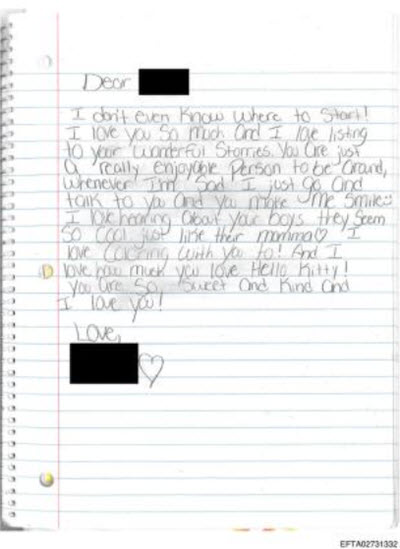 Dear
I don't even know where to start!
I love you so much and I love listing
to your wonderful stories. You are just
a really enjoyable person to be around,
whenever I'm sad I just go and
talk to you and you make me smile:)
I love hearing about your boys they seem
so cool just like their momma♡ I
love with you to! And I
love how much you love Hello Kitty!
you are so sweet and kind and
I love you!
Love,
♡
EFTA02731332